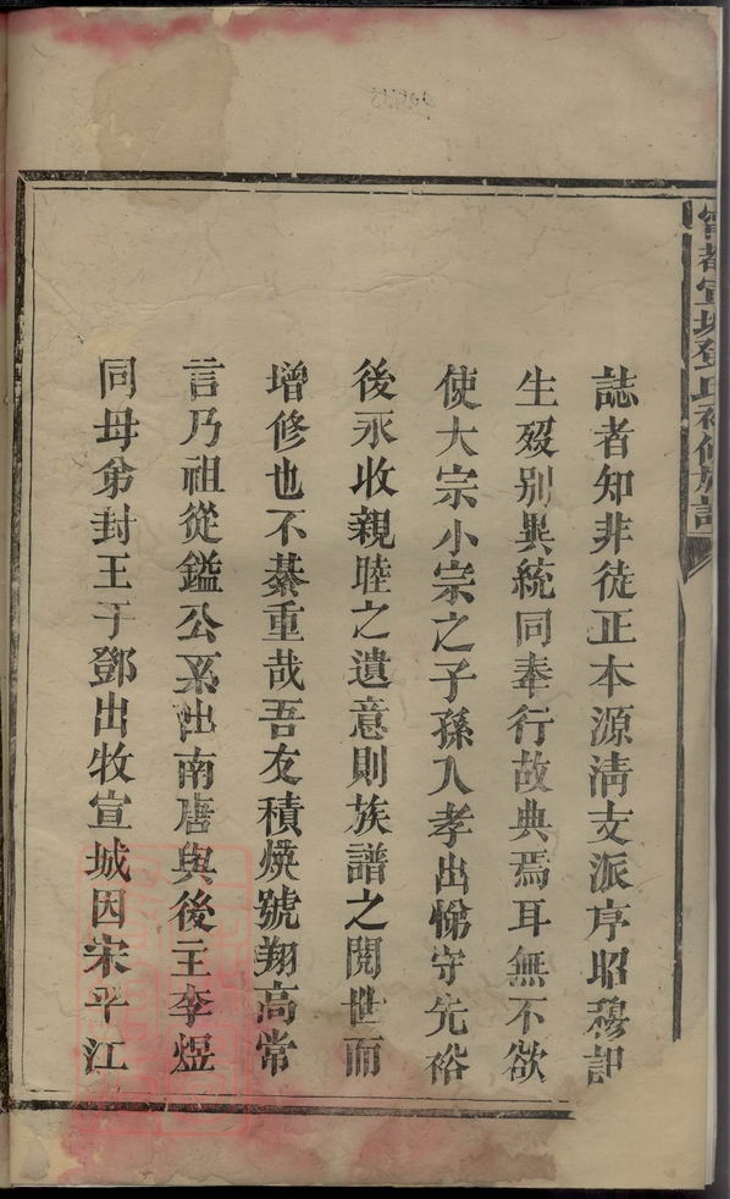 甯都宣城鄧氏補修族譜
誌者知非徒正本源清支派序昭穆詳
生歿別異統同奉行故典焉耳無不欲
使大宗小宗之子孫入孝出悌守先裕
後永收親睦之遺意則族譜之閱世而
增修也不綦重哉吾友積煥號翔高常
言乃祖從鎰公系出南唐與後主李煜
同母弟封王于鄧出牧宣城因宋平江